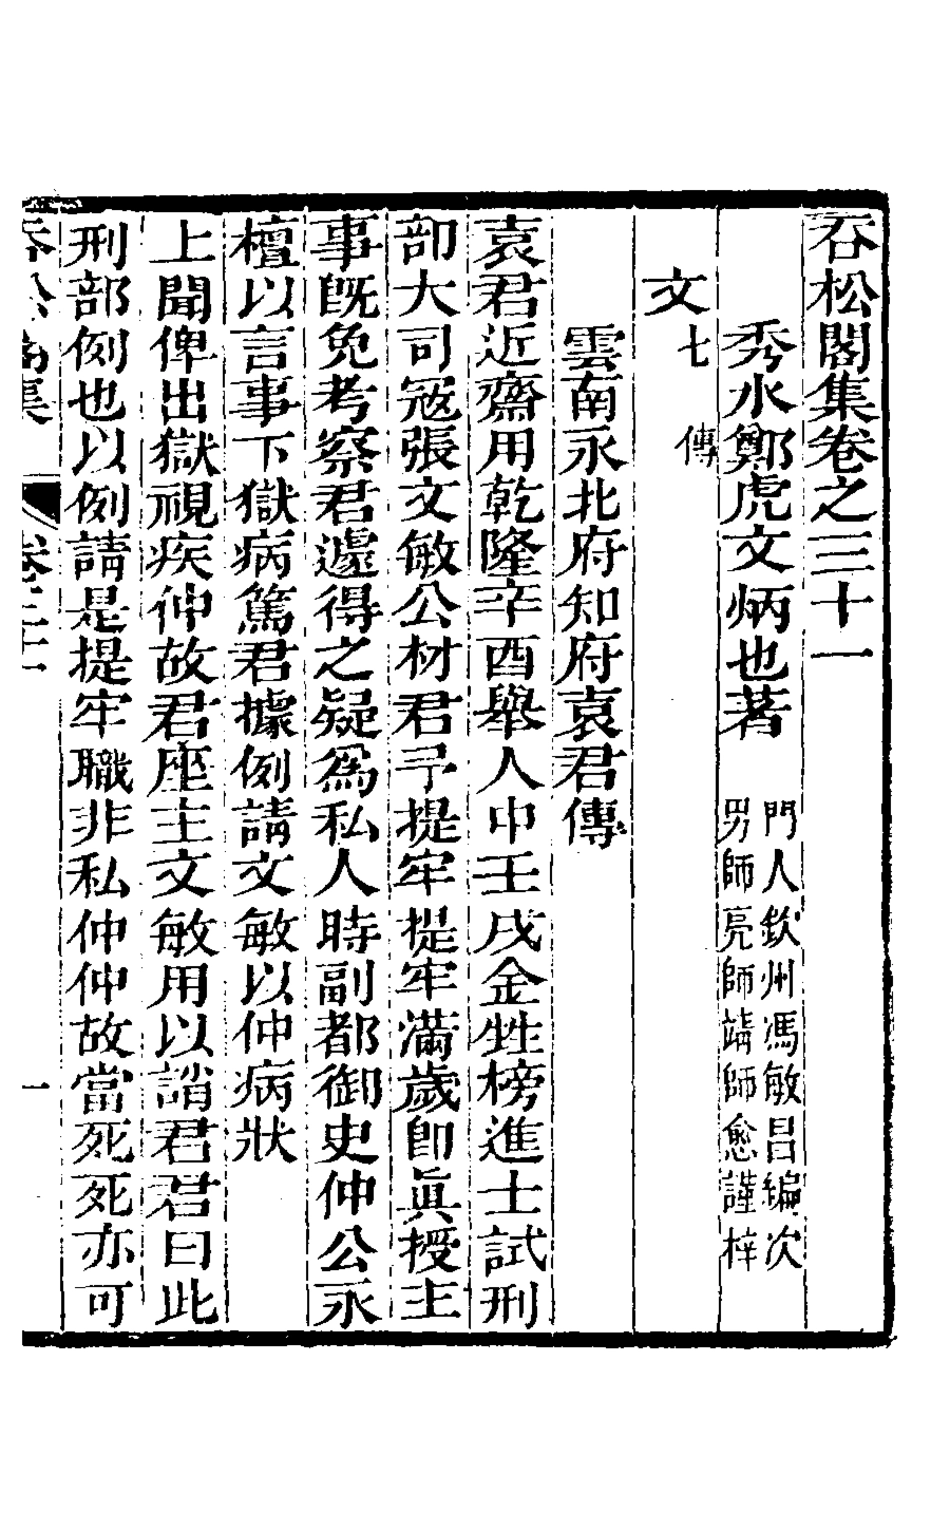 吞松閣集卷之三十一
秀水鄭虎文炳也著
門人欽州馮敏昌編次
男師亮師靖師愈謹梓
文七
傳
雲南永北府知府袁君傳
袁君近齋用乾隆辛酉舉人中壬戌金甡榜進士試刑
部大司寇張文敏公材君予提牢提牢滿歲卽眞授主
事旣免考察君遽得之疑爲私人時副都御史仲公永
檀以言事下獄病篤君據例請文敏以仲病狀
上聞俾出獄視疾仲故君座主文敏用以誚君君曰此
刑部例也以例請是提牢職非私仲仲故當死死亦可
吞松閣集
卷三十一
一